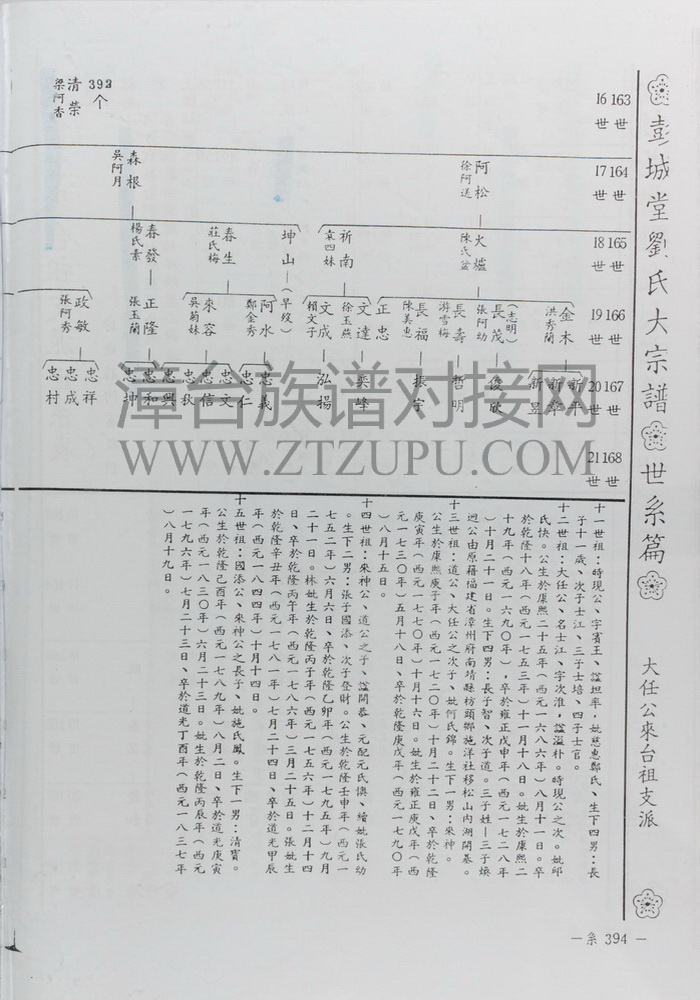 彭城堂劉氏大宗譜
世系篇
大任公來台祖支派
— 系 394 —
163 16
世 世
164 17
世 世
165 18
世 世
166 19
世 世
167 20
世 世
168 21
世 世
393
个
清榮
梁阿香
阿松
徐阿送
森根
吳阿月
火爐
陳氏盆
祈南
袁四妹
坤山
(早歿)
春生
莊氏梅
春發
楊氏素
金木
洪秀蘭
(志明)
長茂
張阿幼
長壽
游雪梅
長福
陳美惠
正忠
文達
徐玉燕
文成
賴文子
阿水
鄭金秀
來容
吳菊妹
正隆
張玉蘭
政敏
張阿秀
新平
新章
新昱
俊欣
哲明
振宇
奕峰
泓揚
忠義
忠仁
忠文
忠信
忠欽
忠興
忠和
忠坤
忠祥
忠成
忠村
漳台族谱对接网
WWW.ZTZUPU.COM
十一世祖:時現公、字賓王、諡坦率,妣慈惠鄭氏、生下四男:長
子十一歲、次子士江、三子士培、四子士官。
十二世祖:大任公、名士江、字次淮,諡溫朴。時現公之次。妣邱
氏快。公生於康熙二十五年(西元一六八六年)八月十一日。卒
於乾隆十八年(西元一七五三年)十一月十八日。妣生於康熙二
十九年(西元一六九〇年),卒於雍正戊申年(西元一七二八年
)十月二十一日。生下四男:長子智、次子道。三子姓—三子煥
迴公由原籍福建省漳州府南靖縣枋頭鄉施洋社移松山內湖開基。
十三世祖:道公、大任公之次子、妣何氏錦。生下一男:來神。
公生於康熙庚子年(西元一七二〇年)十月二十二日、卒於乾隆
庚寅年(西元一七七〇年)十月十四日。妣生於雍正庚戌年(西
元一七三〇年)五月十八日、卒於乾隆庚戌年(西元一七九〇年
)八月十五日。
十四世祖:來神公、道公之子、諡開恭、元配元氏慎、續妣張氏幼
。生下二男:張子國添、次子登財。公生於乾隆壬申年(西元一
七五二年)六月六日、卒於乾隆乙卯年(西元一七九五年)九月
二十一日。林妣生於乾隆丙子年(西元一七五六年)十二月十四
日、卒於乾隆丙午年(西元一七八六年)三月二十五日。張妣生
於乾隆辛丑年(西元一七八一年)七月二十四日、卒於道光甲辰
年(西元一八四四年)十月十四日。
十五世祖:國添公、來神公之長子、妣施氏鳳。生下一男:清寶。
公生於乾隆己酉年(西元一七八九年)八月二日、卒於道光庚寅
年(西元一八三〇年)六月二十三日。妣生於乾隆丙辰年(西元
一七九六年)七月二十三日、卒於道光丁酉年(西元一八三七年
)八月十九日。